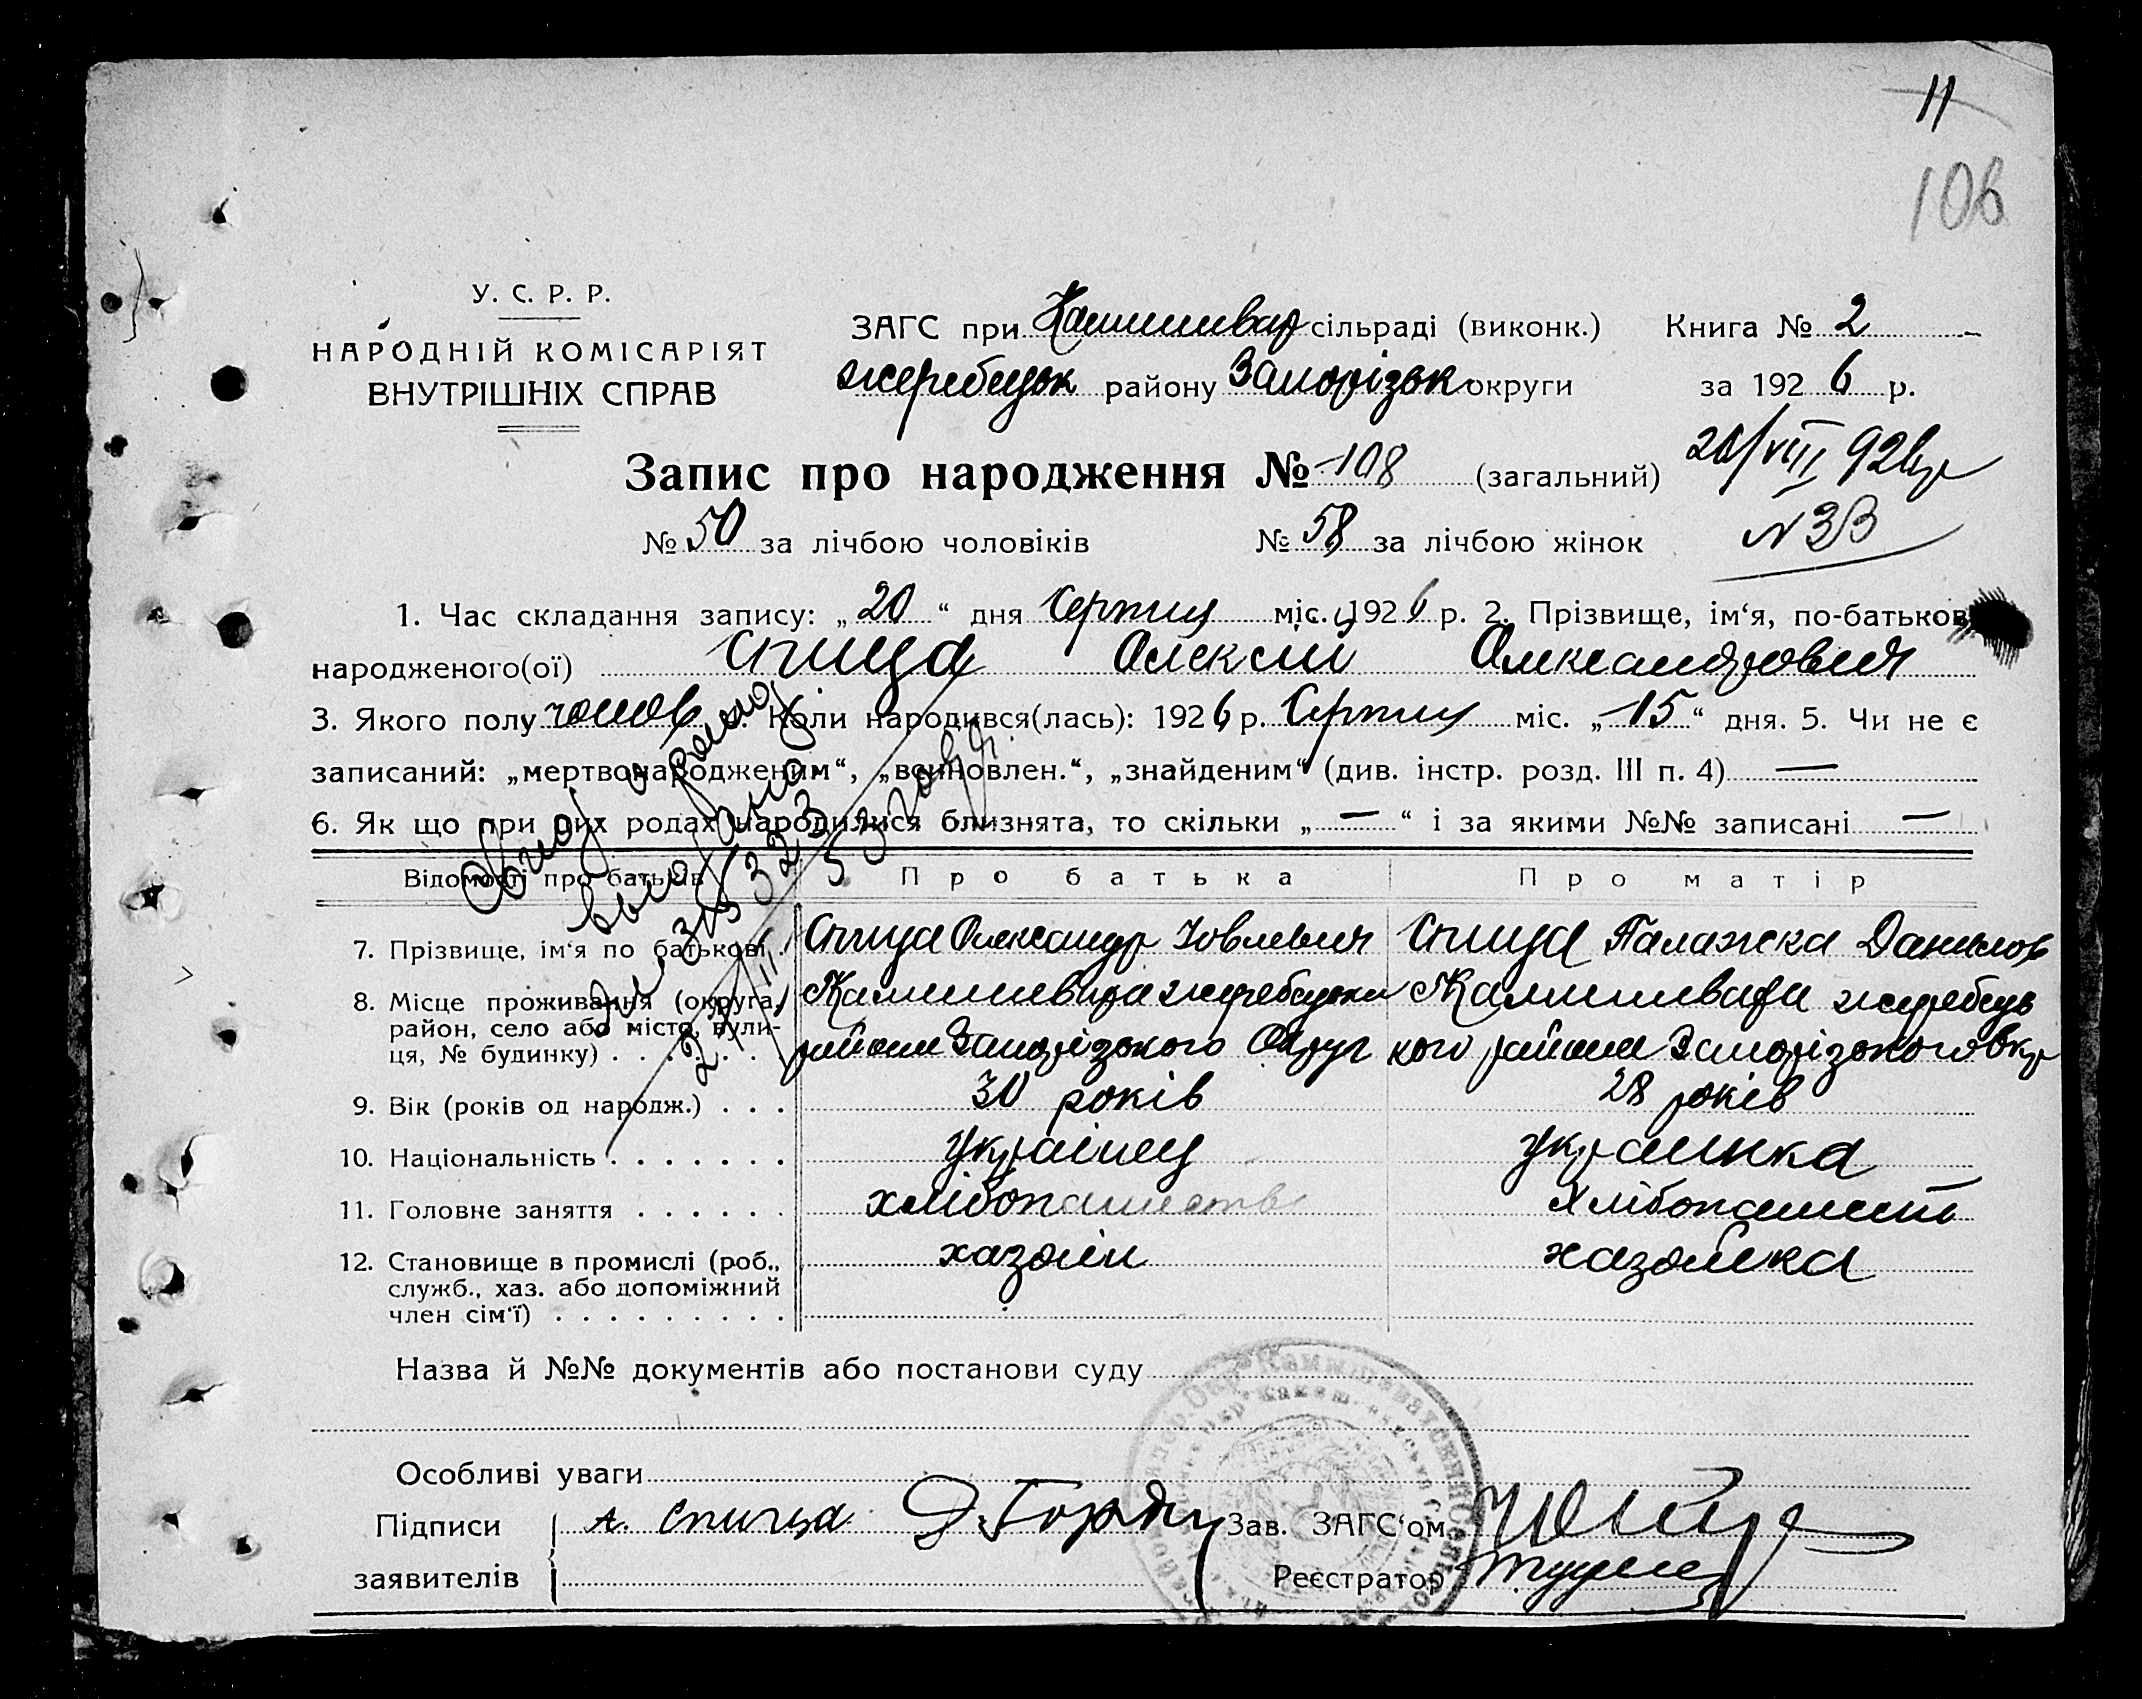 11
106
У. С. Р. Р.
НАРОДНІЙ КОМІСАРІЯТ
ВНУТРІШНІХ СПРАВ
ЗАГС при Камишевар сільраді (виконк.) Книга № 2
жеребецьк району Запорізьк округи за 1926 р.
Запис про народження № 108 (загальний)
20/VIII 926 р
№ 50 за лічбою чоловіків № 58 за лічбою жінок
N 33
1. Час складання запису: „20“ дня Серпня міс. 1926 р. 2. Прізвище, ім‘я, по-батькові
народженого(ої) Спица Олексій Олександрович
3. Якого полу чолов 4. Коли народився(лась): 1926 р. Серпня міс. „15“ дня. 5. Чи не є
записаний: „мертвонародженим“, „всиновлен.“, „знайденим“ (див. інстр. розд. III п. 4) —
6. Як що при цих родах народилися близнята, то скільки „—“ і за якими №№ записані —
Відомості про батьків Про батька Про матір
7. Прізвище, ім‘я по батькові . Спица Олександр Іовлевич Спица Палажка Данилов
8. Місце проживання (округа, Камишевара жеребецьки Камишевара жеребець
район, село або місто, вули-
ця, № будинку) . . . . . . района Запорізького Округ кого района Запорізького Окр
9. Вік (років од народж.) . . . 30 років 28 років
10. Національність . . . . . . . Українец Украинка
11. Головне заняття . . . . . . хлібопашеств Хлібопашеств
12. Становище в промислі (роб., хазяїн хазяйка
служб., хаз. або допоміжний
член сім‘ї) . . . . . . . . .
Назва й №№ документів або постанови суду
Особливі уваги
Підписи А. Спица Зав. ЗАГС‘ом
заявителів Реєстратор